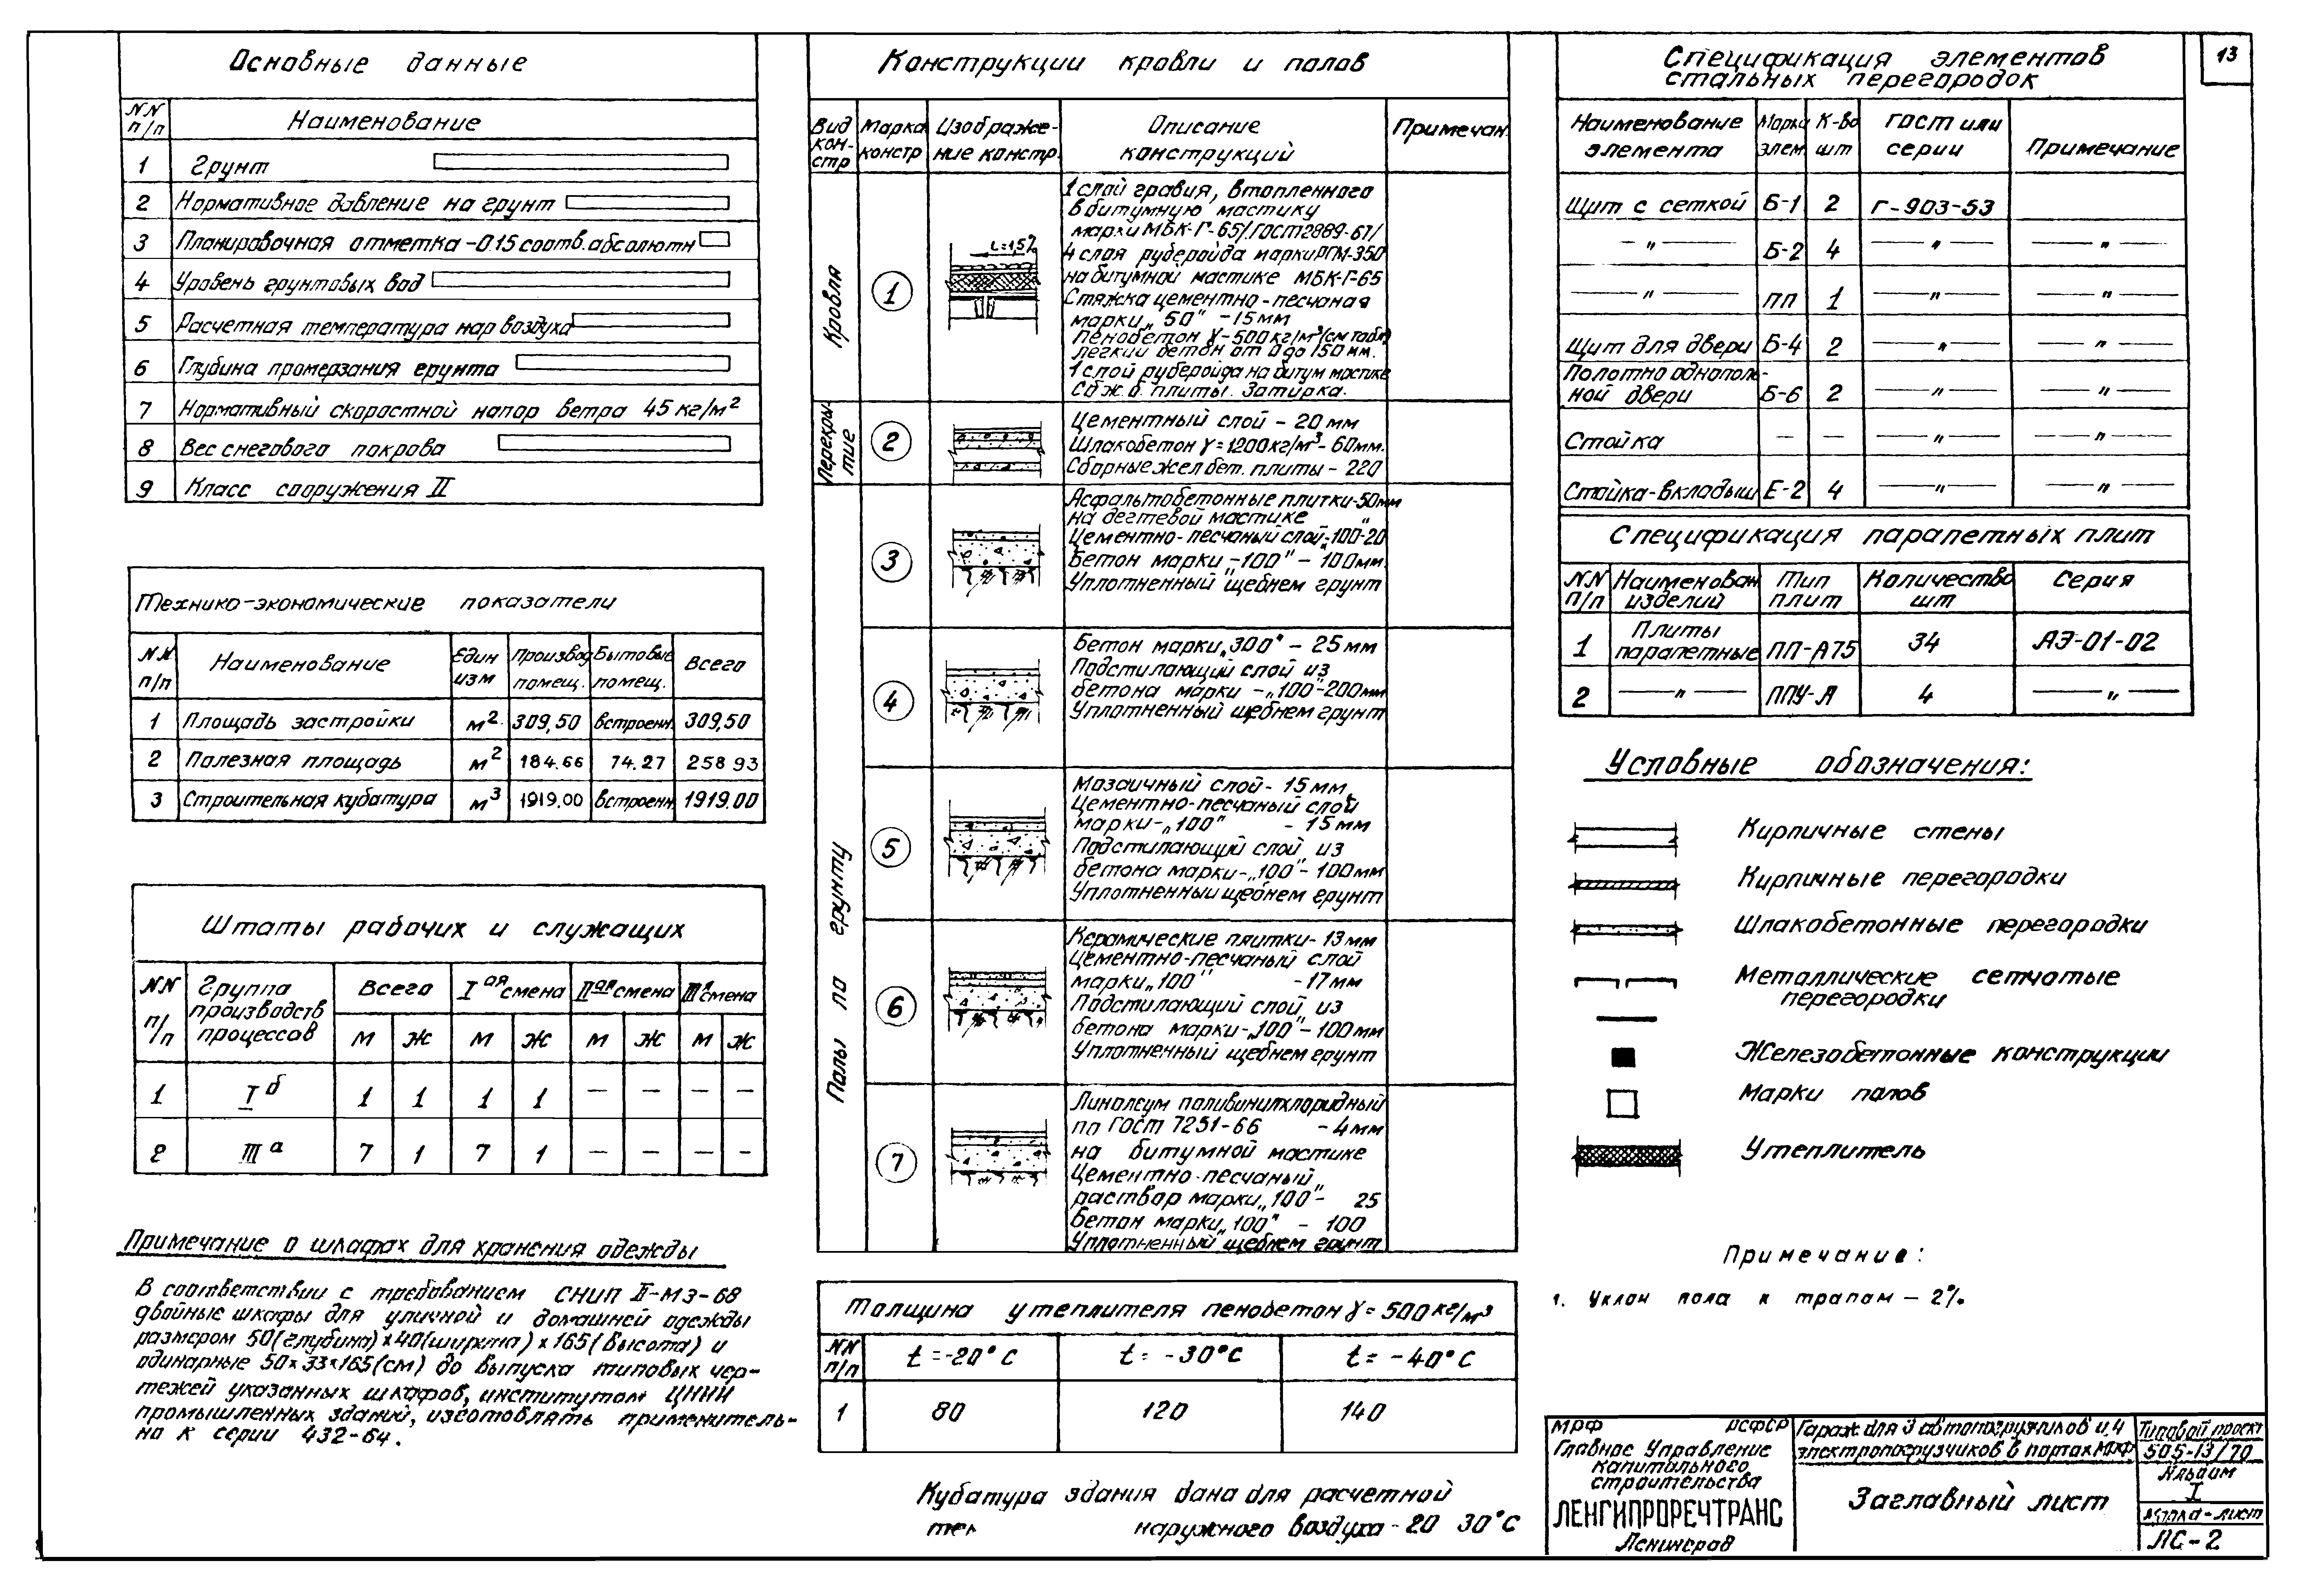 13
Основные данные
NN п/п Наименование
1 Грунт
2 Нормативное давление на грунт
3 Планировочная отметка -0.15 соотв. абсолютн
4 Уровень грунтовых вод
5 Расчетная температура нар воздуха
6 Глубина промерзания грунта
7 Нормативный скоростной напор ветра 45 кг/м²
8 Вес снегового покрова
9 Класс сооружения II
Технико-экономические показатели
NN п/п Наименование Един изм Производ помещ. Бытовые помещ. Всего
1 Площадь застройки м² 309,50 встроенн. 309,50
2 Полезная площадь м² 184.66 74.27 258 93
3 Строительная кубатура м³ 1919.00 встроенн 1919.00
Штаты рабочих и служащих
NN п/п Группа производств процессов Всего I ая смена II ая смена III я смена
М Ж М Ж М Ж М Ж
1 I б 1 1 1 1 — — — —
2 III а 7 1 7 1 — — — —
Примечание о шкафах для хранения одежды
В соответствии с требованием СНИП II-МЗ-68
двойные шкафы для уличной и домашней одежды
размером 50(глубина)×40(ширина)×165(высота) и
одинарные 50×33×165(см) до выпуска типовых чер-
тежей указанных шкафов, институтом ЦНИИ
промышленных зданий, изготовлять применитель-
но к серии 432-64.
Конструкции кровли и полов
Вид кон- стр Марка констр Изображе- ние констр. Описание конструкций Примечан.
Кровля
1
i=1,5%
1 слой гравия, втопленного
в битумную мастику
марки МБК-Г-65/ГОСТ 2889-67/
4 слоя рубероида марки РГМ-350
на битумной мастике МБК-Г-65
Стяжка цементно-песчаная
марки „50" -15мм
Пенобетон γ-500кг/м³(см табл)
легкий бетон от 0 до 150 мм.
1 слой рубероида на битум мастике
Сб.ж.б. плиты. Затирка.
Перекры- тие
2
Цементный слой - 20 мм
Шлакобетон γ=1200кг/м³-60мм.
Сборные жел бет. плиты - 220
Полы по грунту
3
Асфальтобетонные плитки-50мм
на дегтевой мастике „
Цементно-песчаный слой„-100-20
Бетон марки-„100" - 100мм.
Уплотненный щебнем грунт
4
Бетон марки„300" - 25мм
Подстилающий слой из
бетона марки -„100"-200мм
Уплотненный щебнем грунт
5
Мозаичный слой- 15мм
Цементно-песчаный слой
марки-„100" - 15мм
Подстилающий слой из
бетона марки-„100"- 100мм
Уплотненный щебнем грунт
6
Керамические плитки- 13мм
Цементно-песчаный слой
марки„100" -17мм
Подстилающий слой из
бетона марки-„100"- 100мм
Уплотненный щебнем грунт
7
Линолеум поливинилхлоридный
по ГОСТ 7251-66 -4мм
на битумной мастике
Цементно-песчаный
раствор марки„100"- 25
Бетон марки„100" - 100
Уплотненный щебнем грунт
Толщина утеплителя пенобетон γ=500кг/м³
NN п/п t=-20°C t= -30°C t= -40°C
1 80 120 140
Кубатура здания дана для расчетной
наружного воздуха - 20 30°C
Спецификация элементов
стальных перегородок
Наименование элемента Марка элем К-во шт ГОСТ или серии Примечание
Щит с сеткой Б-1 2 Г-903-53
— „ — Б-2 4 — „ — — „ —
— „ — ПП 1 — „ — — „ —
Щит для двери Б-4 2 — „ — — „ —
Полотно однополь-
ной двери Б-6 2 — „ — — „ —
Стойка — — — „ — — „ —
Стойка-вкладыш Е-2 4 — „ — — „ —
Спецификация парапетных плит
NN п/п Наименован изделий Тип плит Количество шт Серия
1 Плиты парапетные ПП-А75 34 АЭ-01-02
2 — „ — ППУ-А 4 — „ —
Условные обозначения:
Кирпичные стены
Кирпичные перегородки
Шлакобетонные перегородки
Металлические сетчатые
перегородки
Железобетонные конструкции
Марки полов
Утеплитель
Примечание:
1. Уклон пола к трапам — 2%
МРФ РСФСР
Главное Управление
капитального
строительства
ЛЕНГИПРОРЕЧТРАНС
Ленинград
Гараж для 3 автопогрузчиков и 4
электропогрузчиков в портах МРФ
Заглавный лист
Типовой проект
505-13/70
Альбом
I
Марка-лист
ЛС-2